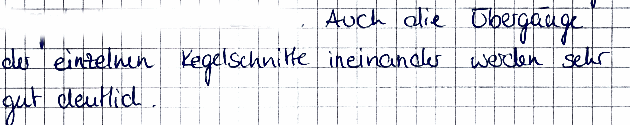 . Auch die Übergänge
der einzelnen Kegelschnitte ineinander werden sehr
gut deutlich.